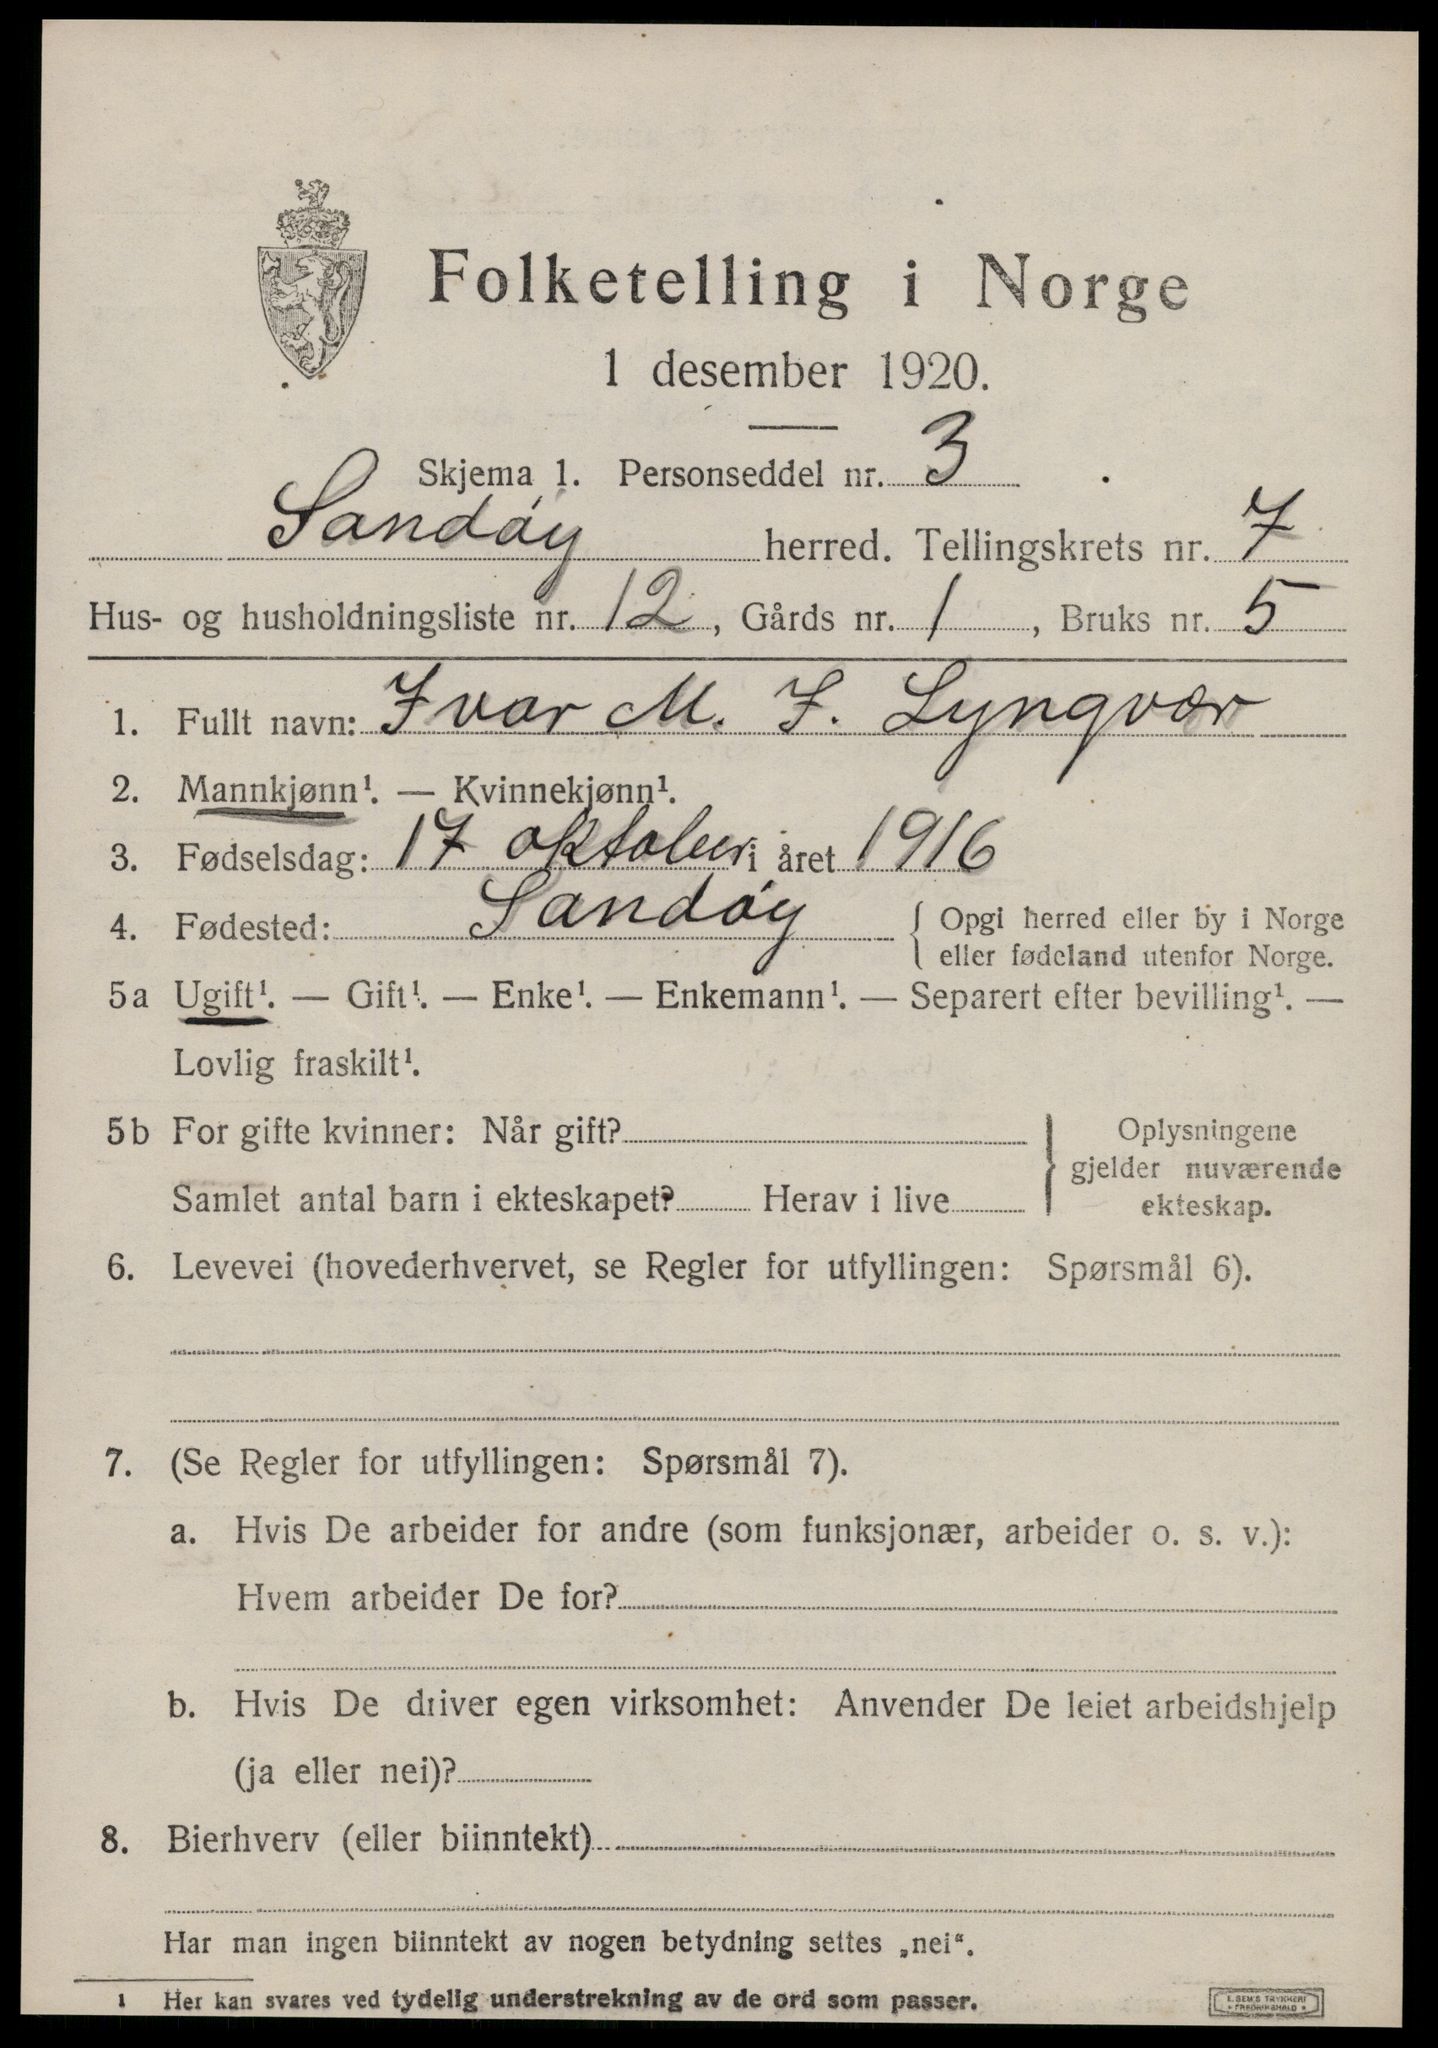 Folketelling i Norge
1 desember 1920.
Skjema 1. Personseddel nr. 3
Sandøy herred. Tellingskrets nr. 7
Hus- og husholdningsliste nr. 12, Gårds nr. 1, Bruks nr. 5
1. Fullt navn: Ivar M. I. Lyngvær
2. Mannkjønn¹. — Kvinnekjønn¹.
3. Fødselsdag: 17 oktober i året 1916
4. Fødested: Sandøy { Opgi herred eller by i Norge
eller fødeland utenfor Norge.
5a Ugift¹. — Gift¹. — Enke¹. — Enkemann¹. — Separert efter bevilling¹. —
Lovlig fraskilt¹.
5b For gifte kvinner: Når gift? } Oplysningene
gjelder nuværende
Samlet antal barn i ekteskapet? Herav i live
ekteskap.
6. Levevei (hovederhvervet, se Regler for utfyllingen: Spørsmål 6).
7. (Se Regler for utfyllingen: Spørsmål 7).
a. Hvis De arbeider for andre (som funksjonær, arbeider o. s. v.):
Hvem arbeider De for?
b. Hvis De driver egen virksomhet: Anvender De leiet arbeidshjelp
(ja eller nei)?
8. Bierhverv (eller biinntekt)
Har man ingen biinntekt av nogen betydning settes „nei“.
1 Her kan svares ved tydelig understrekning av de ord som passer.
E. SEM'S TRYKKERI
• FREDRIKSHALD •